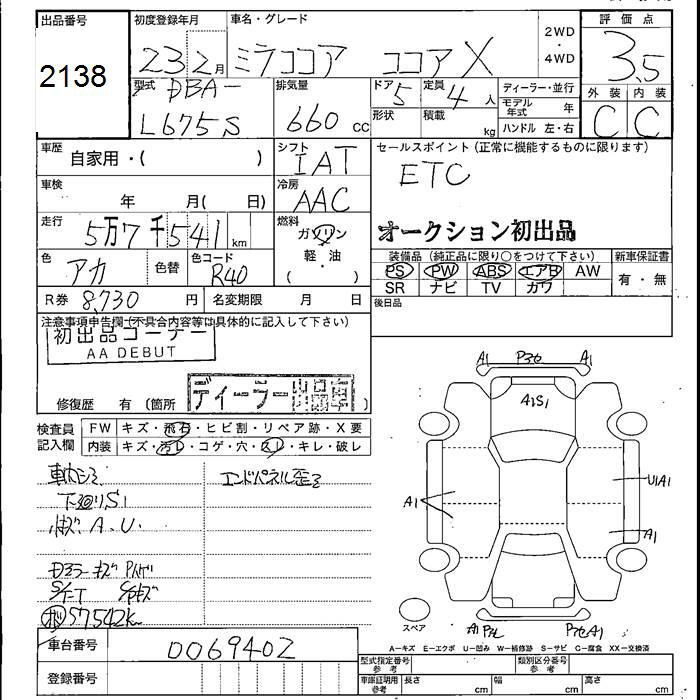 出品番号
2138
初度登録年月
23 2月
車名・グレード
ミラココア ココア X
2WD
・
4WD
評価点
3.5
型式
DBA-
L675S
排気量
660 cc
ドア
5
定員
4 人
形状
積載
kg
ディーラー・並行
モデル年式 年
ハンドル 左・右
外装 内装
C C
車歴
自家用・( )
シフト
IAT
セールスポイント(正常に機能するものに限ります)
ETC
車検
年 月( 日)
冷房
AAC
走行
5万7千541 km
燃料
ガソリン
軽・油
( )
オークション初出品
色
アカ
色替
色コード
R40
装備品(純正品に限り○をつけて下さい)
新車保証書
PS PW ABS エアB AW
SR ナビ TV カワ
有・無
R券 8,730 円
名変期限 月 日
後日品
注意事項申告欄(不具合内容等は具体的に記入して下さい)
初出品コーナー
AA DEBUT
ディーラー出品車
修復歴 有(箇所 )
検査員
記入欄
FW キズ・飛石・ヒビ割・リペア跡・X要
内装 キズ・汚レ・コゲ・穴・スレ・キレ・破レ
下廻りS1
A.U.
エンドパネル歪ミ
57542km
A1 A1
A1S1
A1
U1A1
A1
A1
スペア
A-キズ E-エクボ U-凹み W-補修跡 S-サビ C-腐食 XX-交換済
車台番号
0069402
登録番号
型式指定番号
参考
類別区分番号
参考
車庫証明用
参考
長さ cm
幅 cm
高さ cm